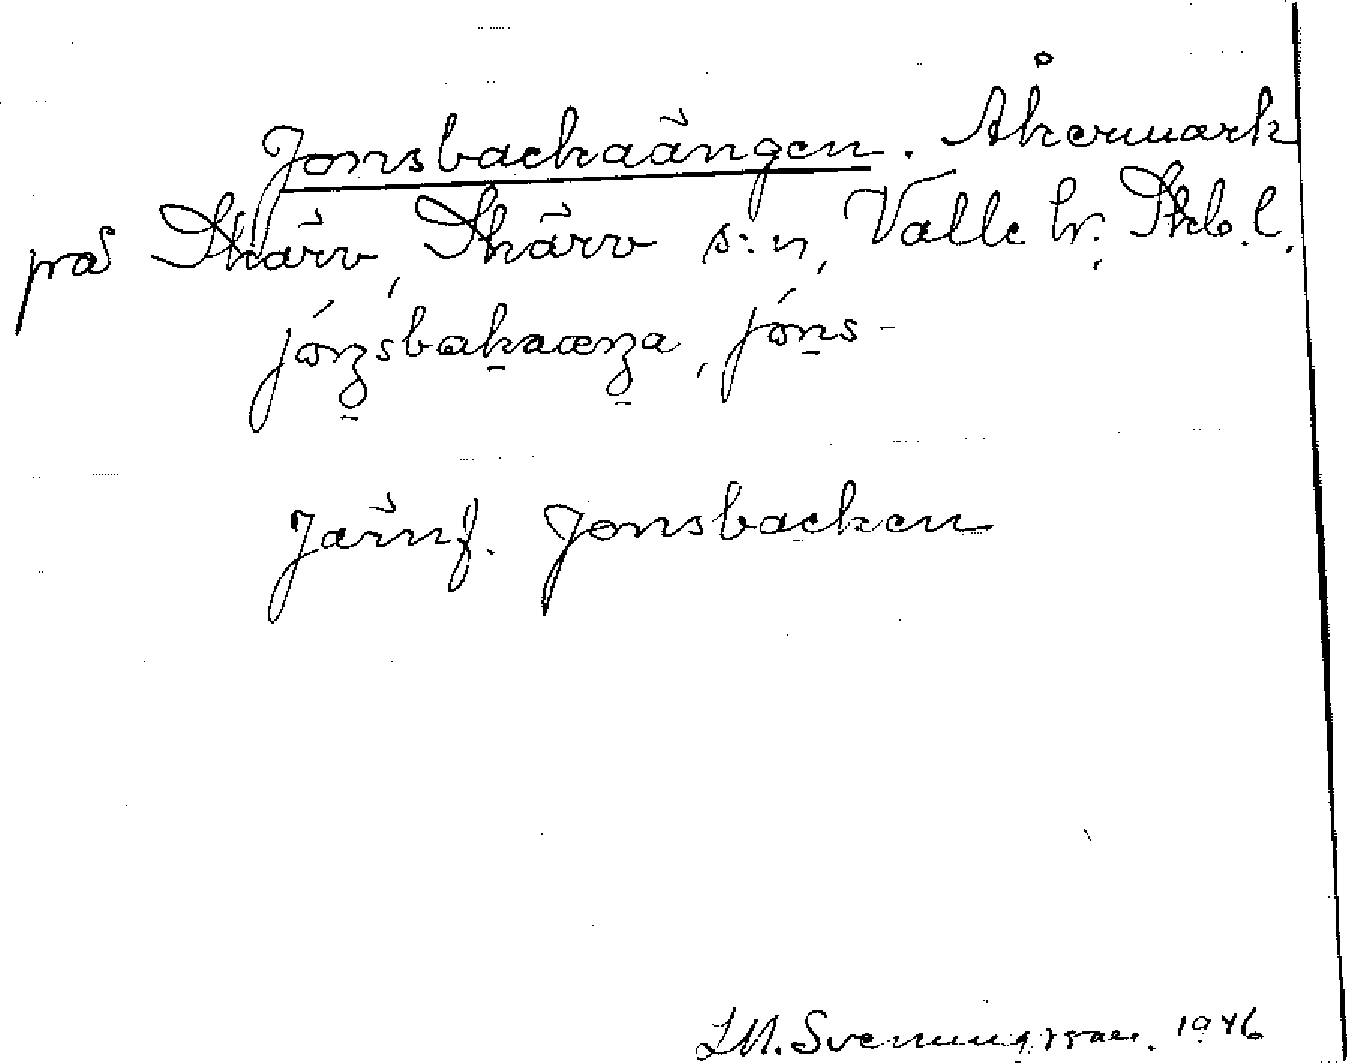 Jonsbackaängen. Åkermark
på Skärv, Skärv s:n, Valle hr. Skb.l.
jóns-
Jämf. Jonsbacken
Svenningsson. 1946